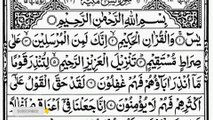 بِسْمِ اللهِ الرَّحْمٰنِ الرَّحِيْمِ
يٰسٓ ۚ وَالْقُرْاٰنِ الْحَكِيْمِ ۙ اِنَّكَ لَمِنَ الْمُرْسَلِيْنَ ۙ عَلٰى
صِرَاطٍ مُّسْتَقِيْمٍ ؕ تَنْزِيْلَ الْعَزِيْزِ الرَّحِيْمِ ۙ لِتُنْذِرَ قَوْمًا
مَّاۤ اُنْذِرَ اٰبَآؤُهُمْ فَهُمْ غٰفِلُوْنَ لَقَدْ حَقَّ الْقَوْلُ عَلٰۤى
اَكْثَرِهِمْ فَهُمْ لَا يُؤْمِنُوْنَ اِنَّا جَعَلْنَا فِيْۤ اَعْنَاقِهِمْ